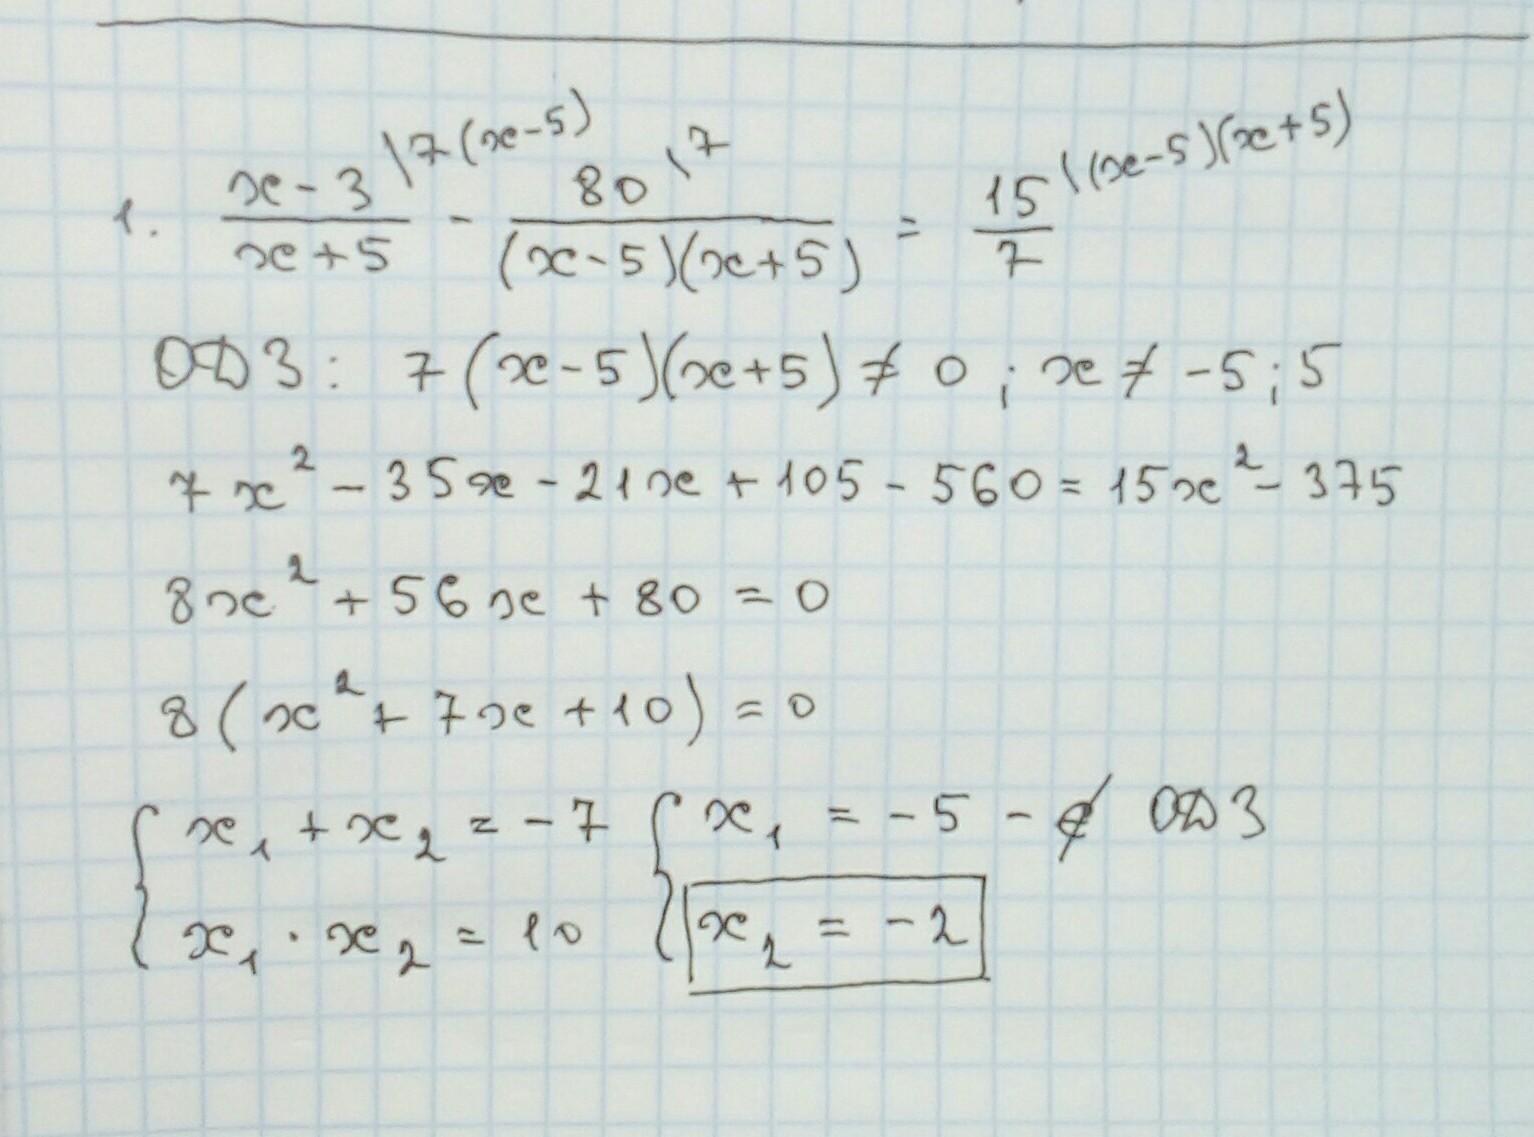 1. \frac{x-3}{x+5}^{\7(x-5)} - \frac{80}{(x-5)(x+5)}^{\7} = \frac{15}{7}^{\(x-5)(x+5)}
ОДЗ: 7(x-5)(x+5) ≠ 0; x ≠ -5; 5
7x² - 35x - 21x + 105 - 560 = 15x² - 375
8x² + 56x + 80 = 0
8(x² + 7x + 10) = 0
{ x₁ + x₂ = -7 { x₁ = -5 - ∉ ОДЗ
x₁ · x₂ = 10 x₂ = -2